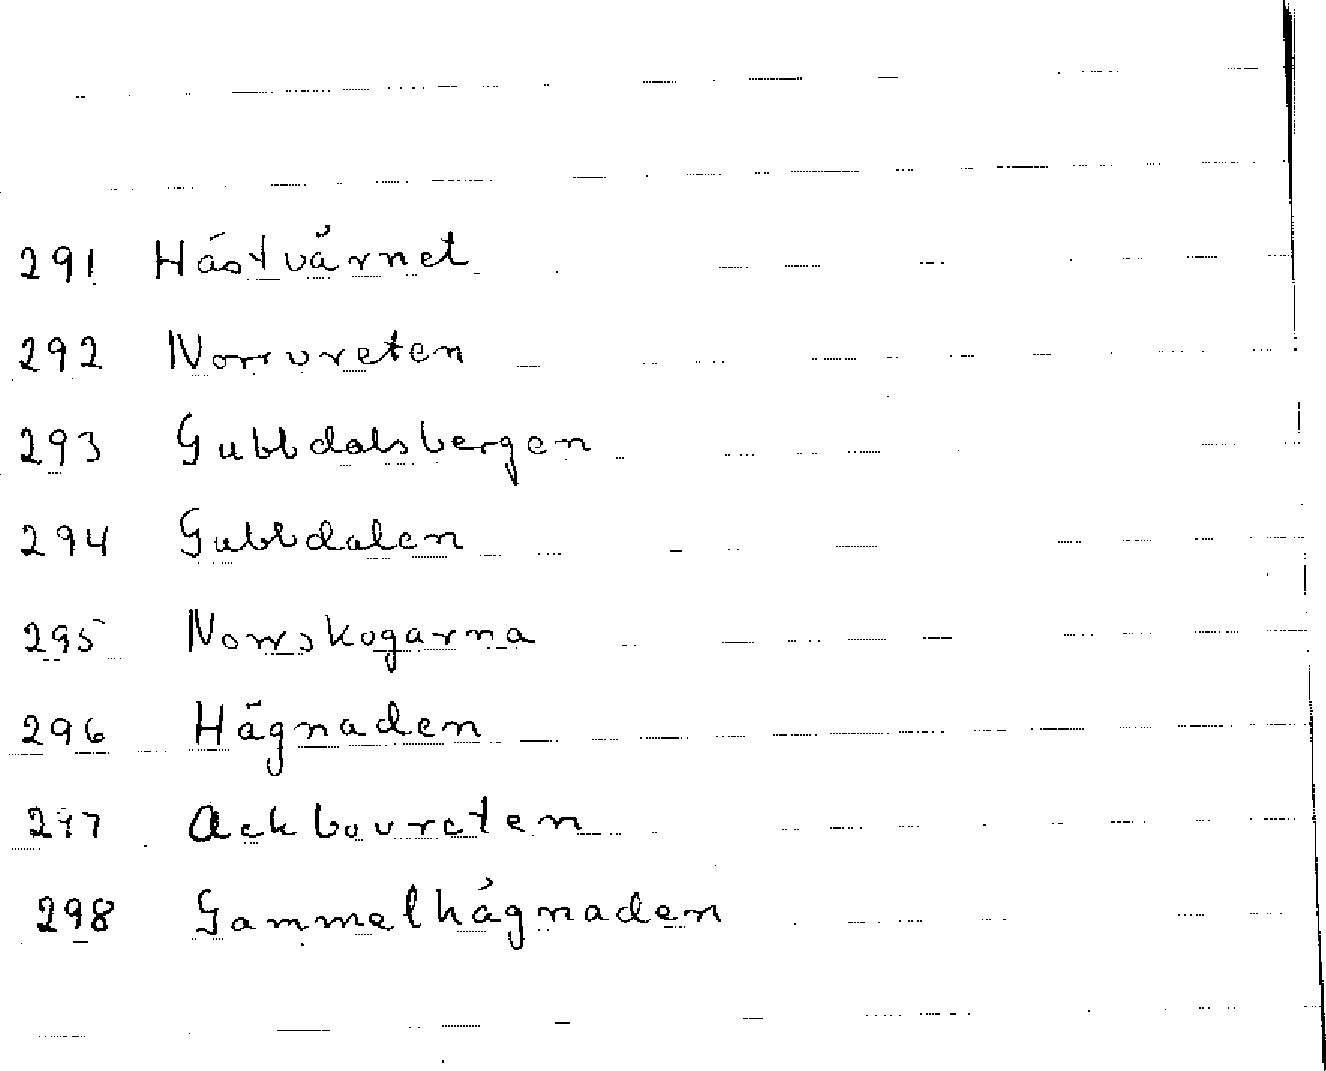 291 Hästvärnet
292 Norrvreten
293 Gubbdalsbergen
294 Gubbdalen
295 Norrskogarna
296 Hägnaden
297 Ackbovreten
298 Gammelhägnaden